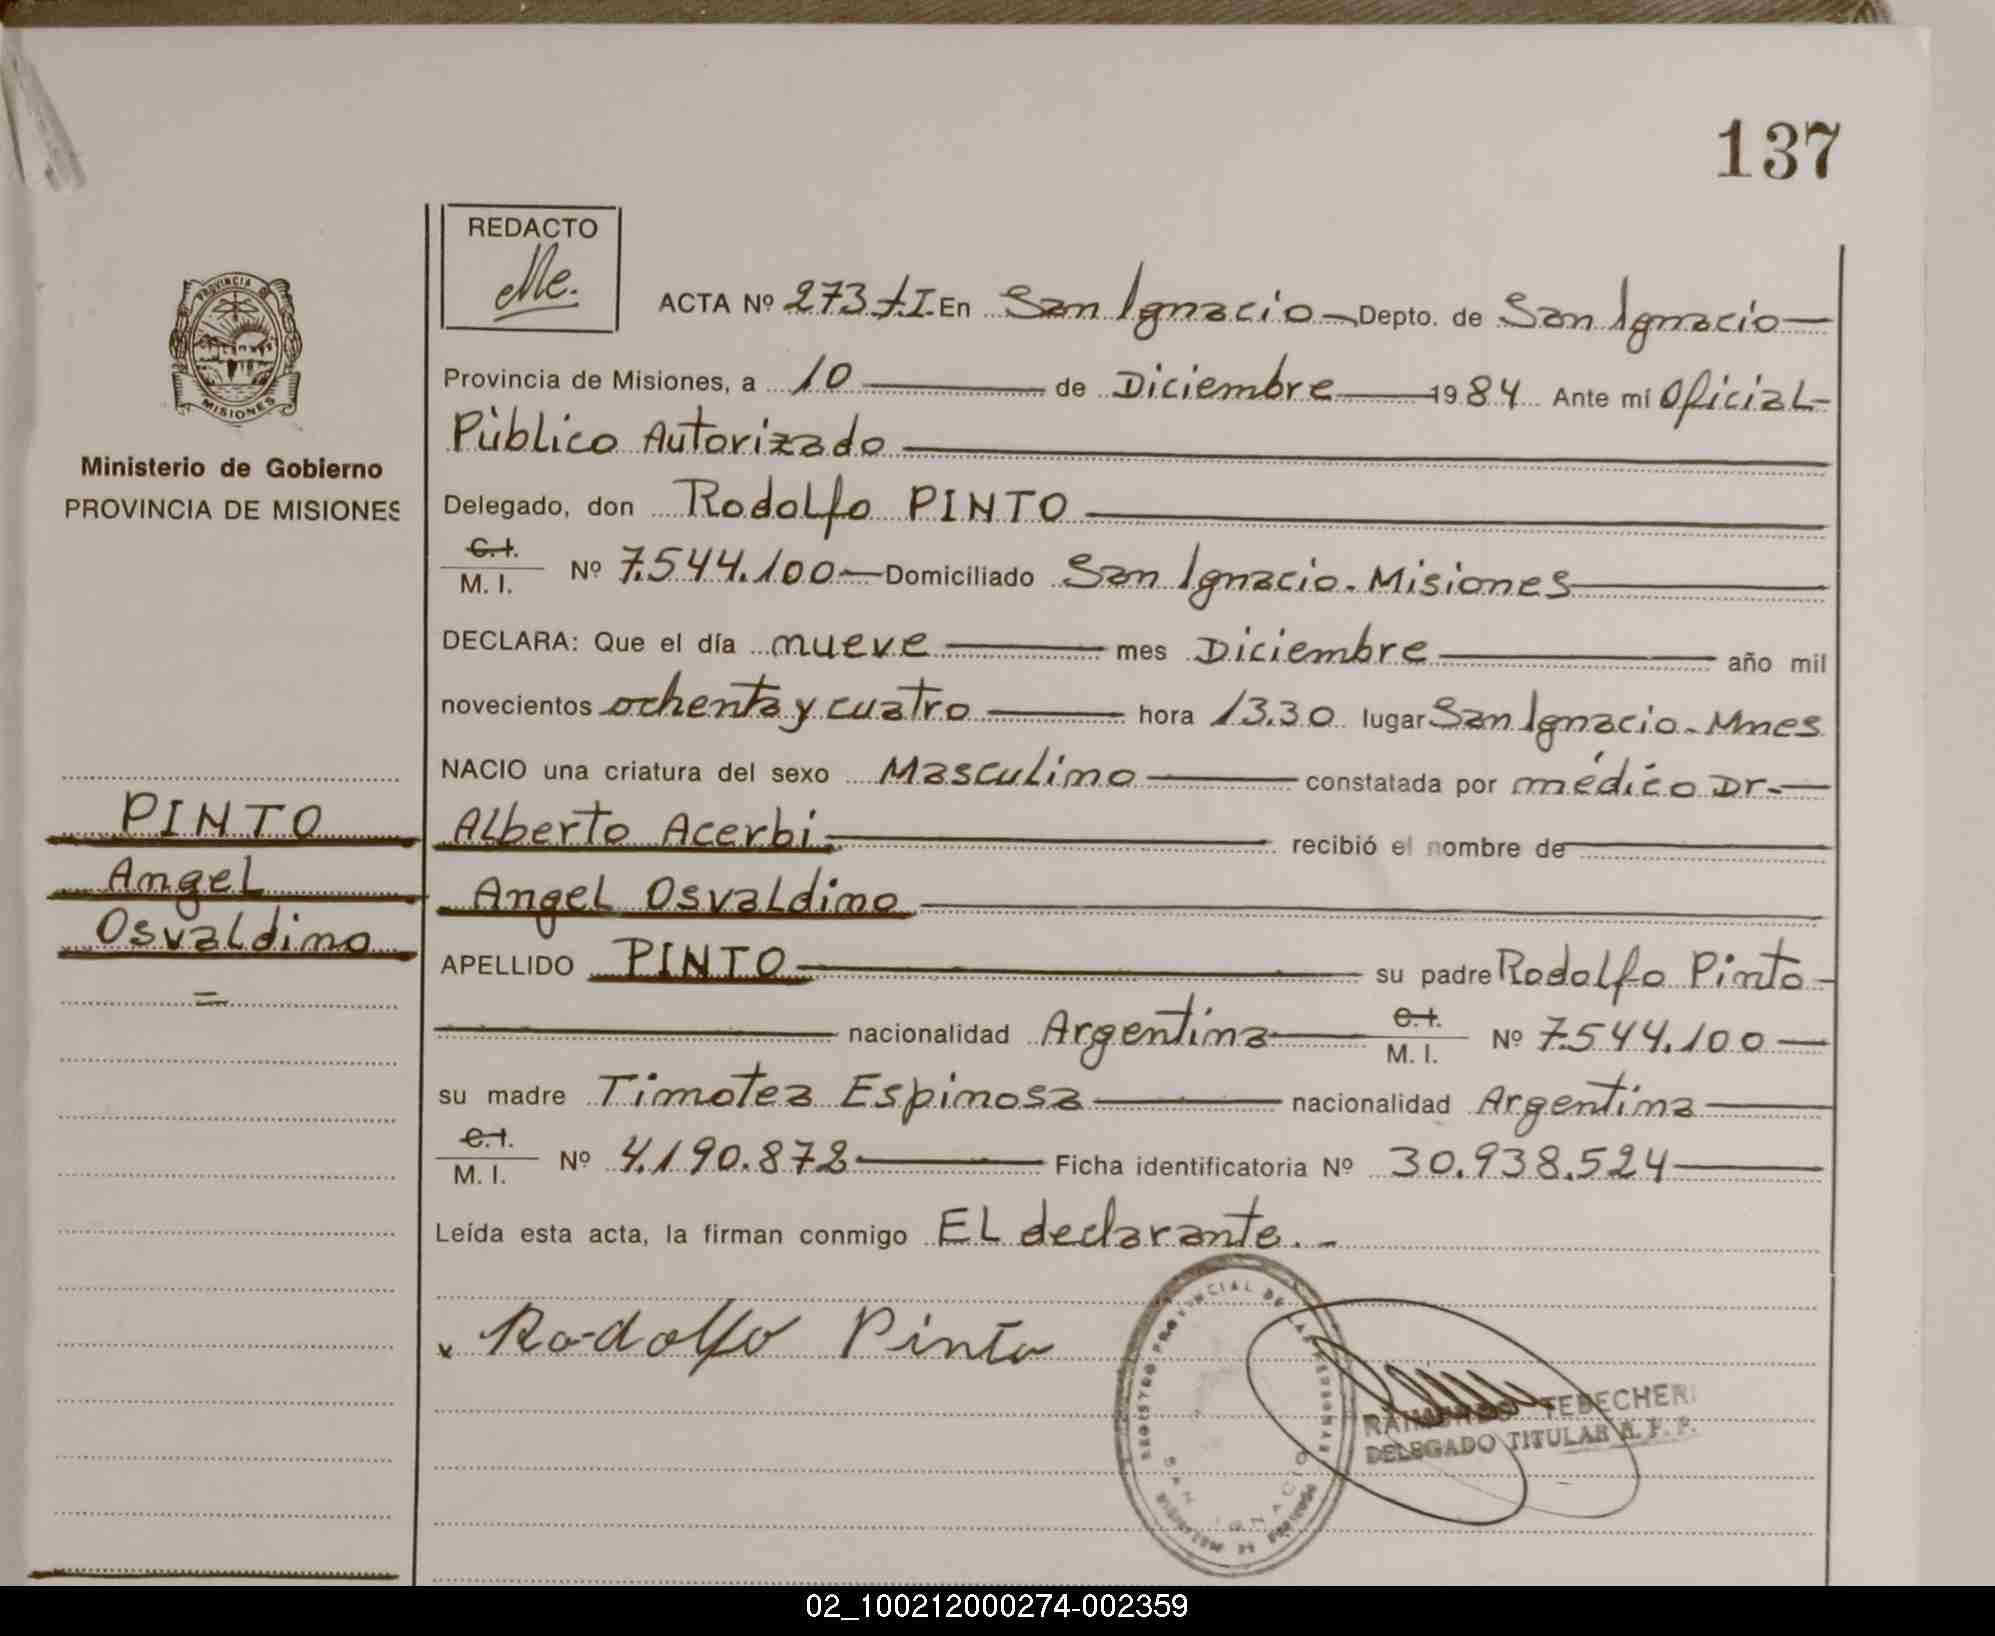 137
REDACTO
PROVINCIA DE
MISIONES
Ministerio de Gobierno
PROVINCIA DE MISIONES
ACTA Nº 273 f.I. En San Ignacio Depto. de San Ignacio
Provincia de Misiones, a 10 de Diciembre 1984 Ante mí Oficial
Público Autorizado
Delegado, don Rodolfo PINTO
C.I.
M. I. Nº 7.544.100 Domiciliado San Ignacio - Misiones
DECLARA: Que el día nueve mes Diciembre año mil
novecientos ochenta y cuatro hora 13.30 lugar San Ignacio - Mnes
NACIO una criatura del sexo Masculino constatada por médico Dr.
Alberto Acerbi recibió el nombre de
Angel Osvaldino
APELLIDO PINTO su padre Rodolfo Pinto
nacionalidad Argentina C.I. M. I. Nº 7.544.100
su madre Timotea Espinosa nacionalidad Argentina
C.I.
M. I. Nº 4.190.872 Ficha identificatoria Nº 30.938.524
Leída esta acta, la firman conmigo El declarante.-
PINTO
Angel
Osvaldino
=
x Rodolfo Pinto
REGISTRO PROVINCIAL DE LAS PERSONAS
SAN IGNACIO
TEBECHERI
DELEGADO TITULAR R. P. P.
02_100212000274-002359